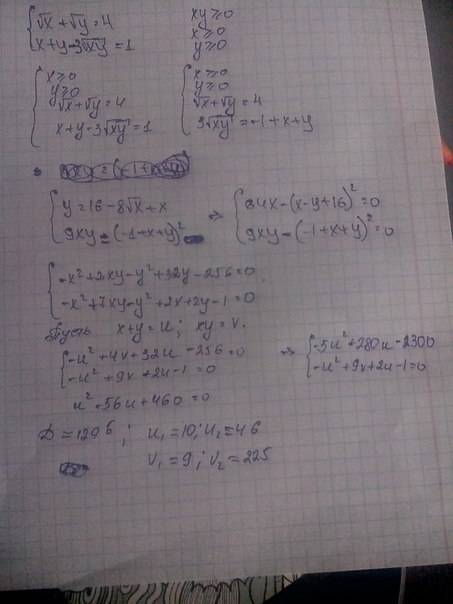 {√x + √y = 4
x + y - 3√xy = 1
xy ≥ 0
x ≥ 0
y ≥ 0
{x ≥ 0
y ≥ 0
√x + √y = 4
x + y - 3√xy = 1
{x ≥ 0
y ≥ 0
√x + √y = 4
3√xy = -1 + x + y
{y = 16 - 8√x + x
9xy = (-1 + x + y)²
⇒ {64x - (x - y + 16)² = 0
9xy - (-1 + x + y)² = 0
{-x² + 2xy - y² + 32y - 256 = 0
-x² + 7xy - y² + 2x + 2y - 1 = 0
Пусть x + y = u; xy = v.
{-u² + 4v + 32u - 256 = 0
-u² + 9v + 2u - 1 = 0
⇒ {-5u² + 280u - 2300
-u² + 9v + 2u - 1 = 0
u² - 56u + 460 = 0
D = 1296; u₁ = 10; u₂ = 46
v₁ = 9; v₂ = 225